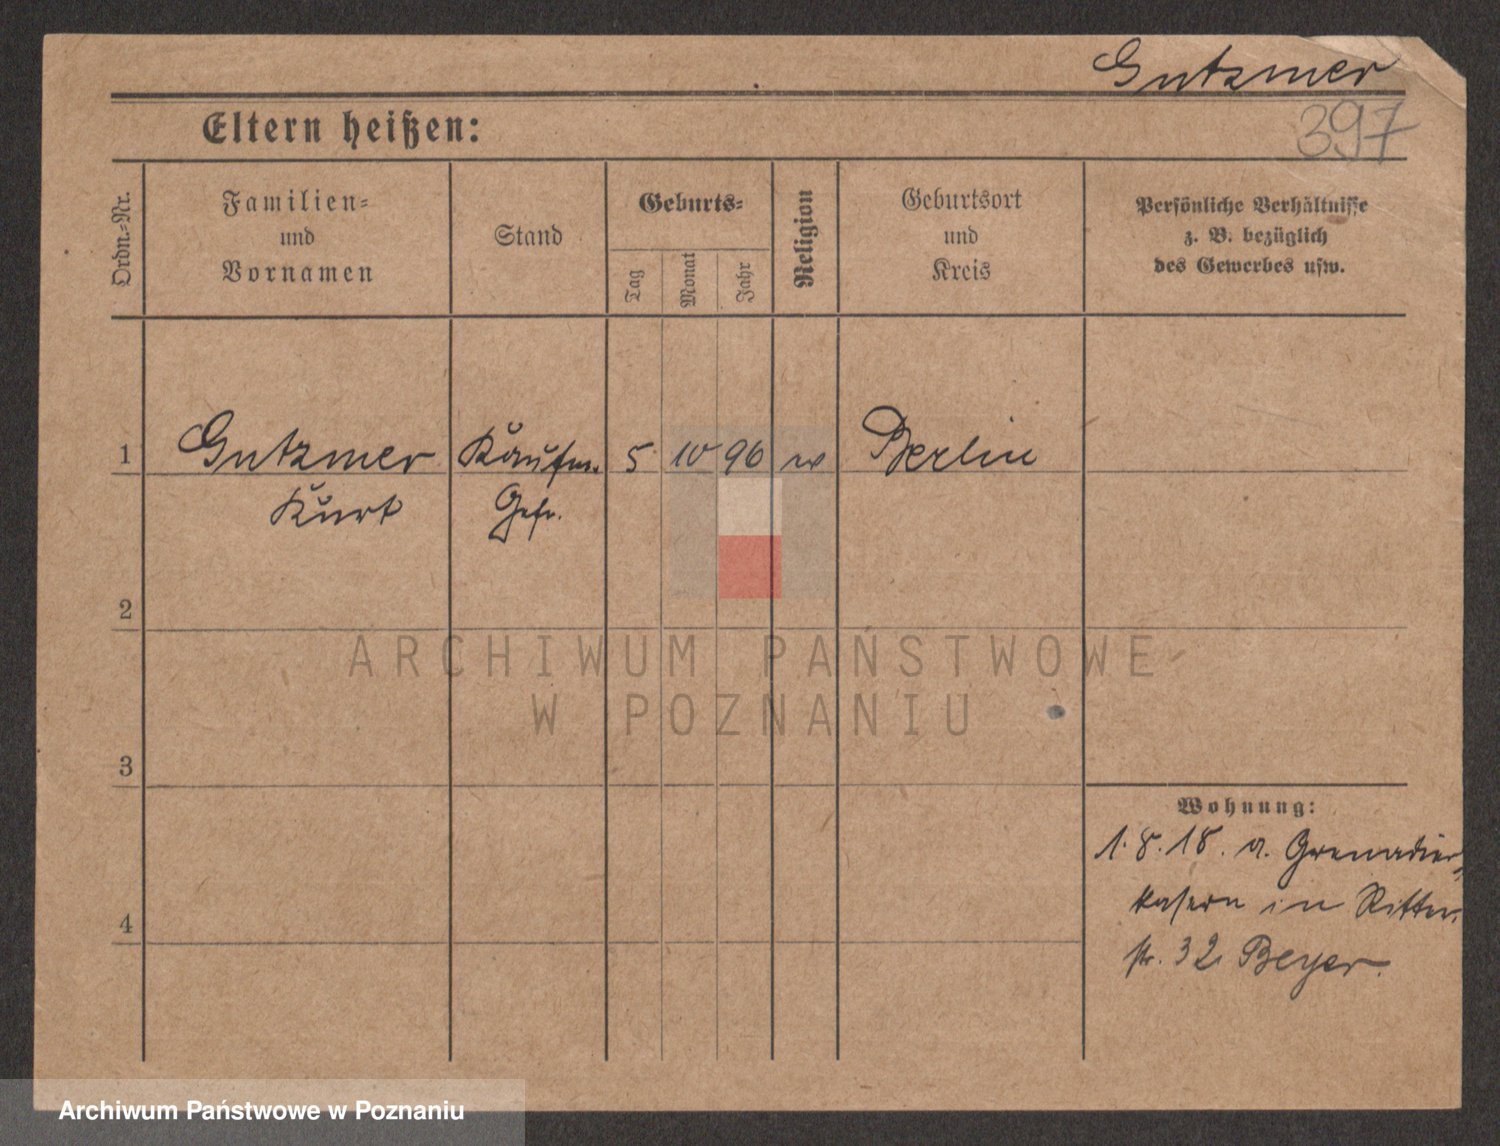 Gutzmer
397
Eltern heißen:
Ordn.-Nr.
Familien-
und
Vornamen
Stand
Geburts-
Tag
Monat
Jahr
Religion
Geburtsort
und
Kreis
Persönliche Verhältnisse
z. B. bezüglich
des Gewerbes usw.
1 Gutzmer Kaufm. 5 10 96 ev Berlin
Kurt Gefr.
2
3
4
Wohnung:
1. 8. 18. a. Grenadier-
kasern in Ritter-
str. 32 Beyer.
ARCHIWUM PAŃSTWOWE
W POZNANIU
Archiwum Państwowe w Poznaniu